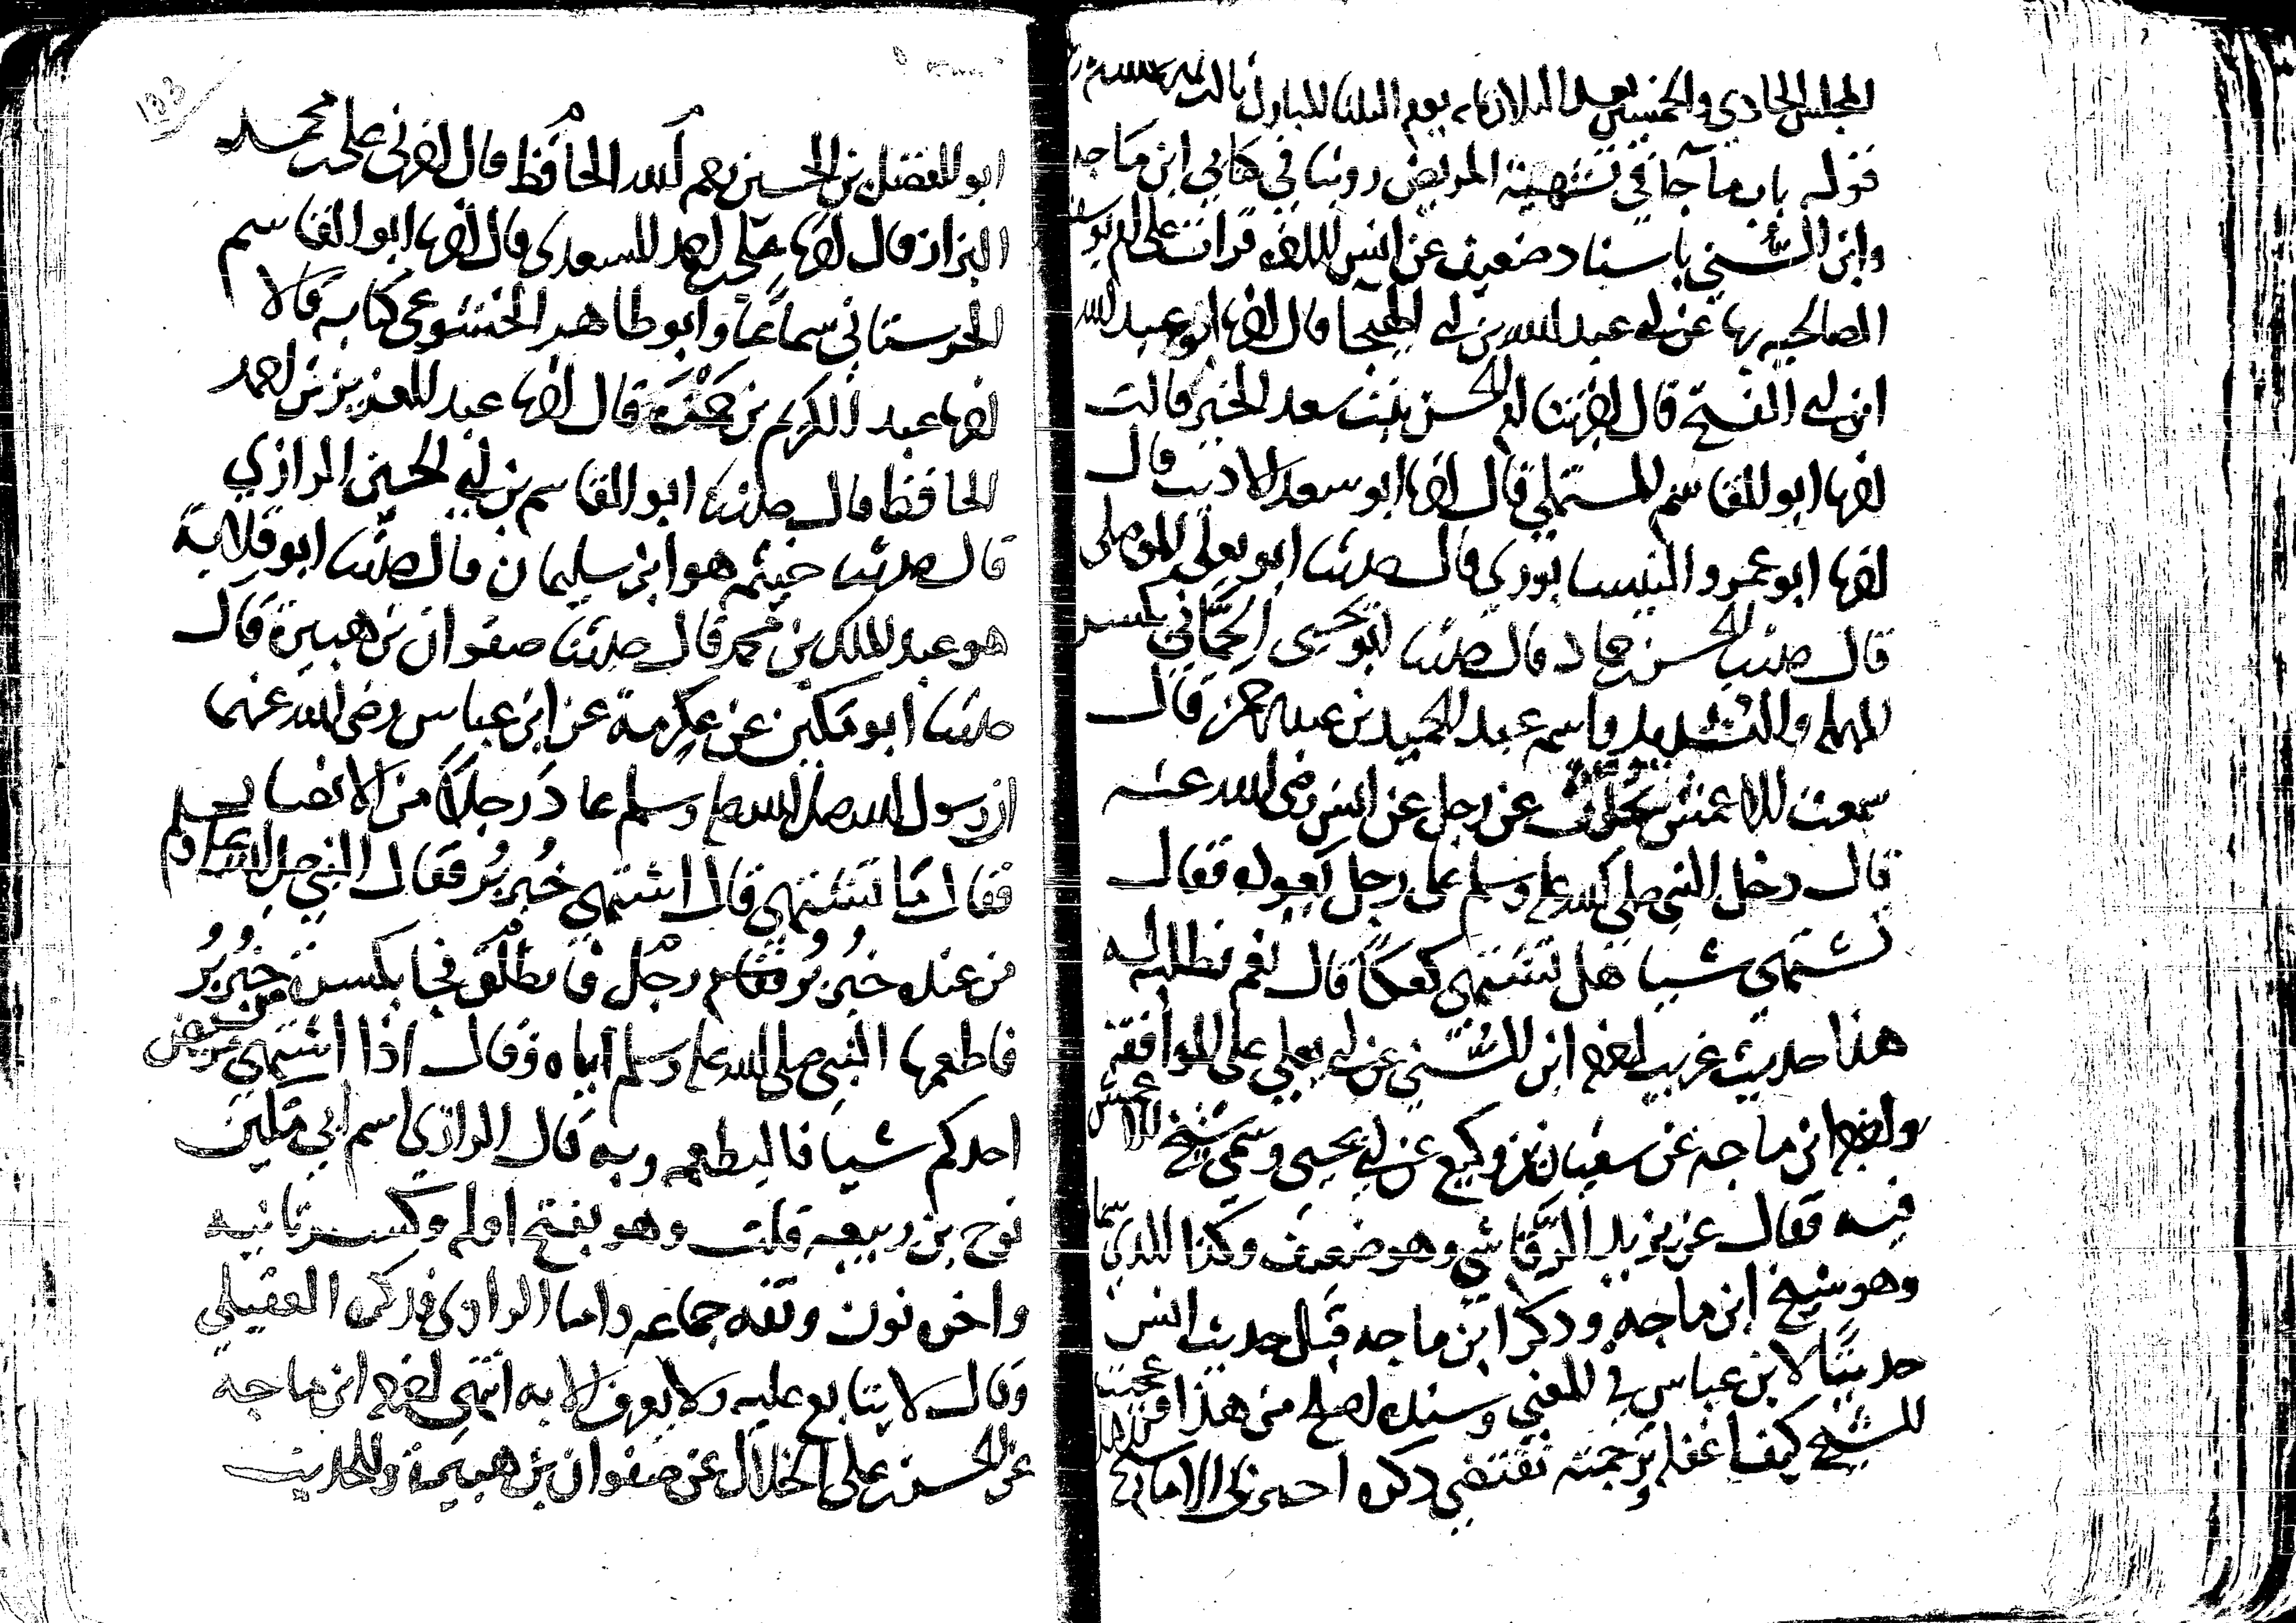 المجلس الحادي والخمسين بعد الثلاثمائه يوم الثلثا المبارك
قوله باب ما جآ في تشهية المريض روينا في كتابي ابن ماجه
وابن السُّني باسناد ضعيف عن انس الى اخره قرات على ام يوسف
الصالحيه بها عن ابي عبد الله بن ابي الهيجا قال اخبرنا ابو عبد الله
ابن ابي الفتح قال اخبرتنا ام الحسن بنت سعد الخير قالت
اخبرنا ابو القاسم المستملي قال اخبرنا ابو سعد الاديب قال
اخبرنا ابو عمرو النيسابوري قال حدثنا ابو يعلى الموصلي
قال حدثنا الحسن بن حماد قال حدثنا ابو يحيى الحِمَّاني بكسر
المهمله والتشديد واسمه عبد الحميد بن عبد الرحمن قال
سمعت الاعمش يحدث عن رجل عن انس رضى الله عنه
قال دخل النبي صلى الله عليه وسلم على رجل يعوده فقال
تشتهى شيا هل تشتهى كعكًا قال نعم فطلبه له
هذا حديث غريب اخرجه ابن السُّنّي عن ابي يعلي على الموافقة
واخرجه ابن ماجه عن سفيان بن وكيع عن ابي يحيى وسمى شيخ الاعمش
فيه فقال عن يزيد الرَّقاشي وهو ضعيف وكذا الذي
وهو شيخ ابن ماجه وذكر ابن ماجه قبل حديث انس
حديثًا لابن عباس في المعني وسنده اصلح من هذا فعجبت
للشيخ كيف اغفله وترجمته تقتضي ذكره اخبرني الامام
ابو الفضل بن الحسين رحمه الله الحافظ قال اخبرني علي بن محمد
البزاز قال اخبرنا علي بن احمد السعدي قال اخبرنا ابو القاسم
الحرستاني سماعًا وابو طاهر الخشوعي كتابه قالا
اخبرنا عبد الكريم بن حمزة قال اخبرنا عبد العزيز بن احمد
الحافظ قال حدثنا ابو القاسم بن ابي الحسين الرازي
قال حدثنا خيثمه هو ابن سليمان قال حدثنا ابو قِلابة
هو عبد الملك بن محمد قال حدثنا صفوان بن هبيرة قال
حدثنا ابو مكين عن عكرمة عن ابن عباس رضى الله عنهما
ان رسول الله صلى الله عليه وسلم عاد رجلًا من الانصار
فقال ما تشتهى قال اشتهى خُبز بُر فقال النبي صلى الله عليه وسلم
من عنده خبز بُر فقام رجل فانطلق فجا بكسرة من خبز بُر
فاطعمها النبي صلى الله عليه وسلم اياه وقال اذا اشتهى مريض
احدكم شيا فاليطعمه وبه قال الرازي اسم ابي مَكين
نوح بن ربيعه قلت وهو بفتح اوله وكسر ثانيه
واخره نون وثقه جماعه واما الراوي فذكره العقيلي
وقال لا يتابع عليه ولا يعرف الا به انتهى اخرجه ابن ماجه
عن الحسن بن علي الخلال عن صفوان بن هبيرة وللحديث